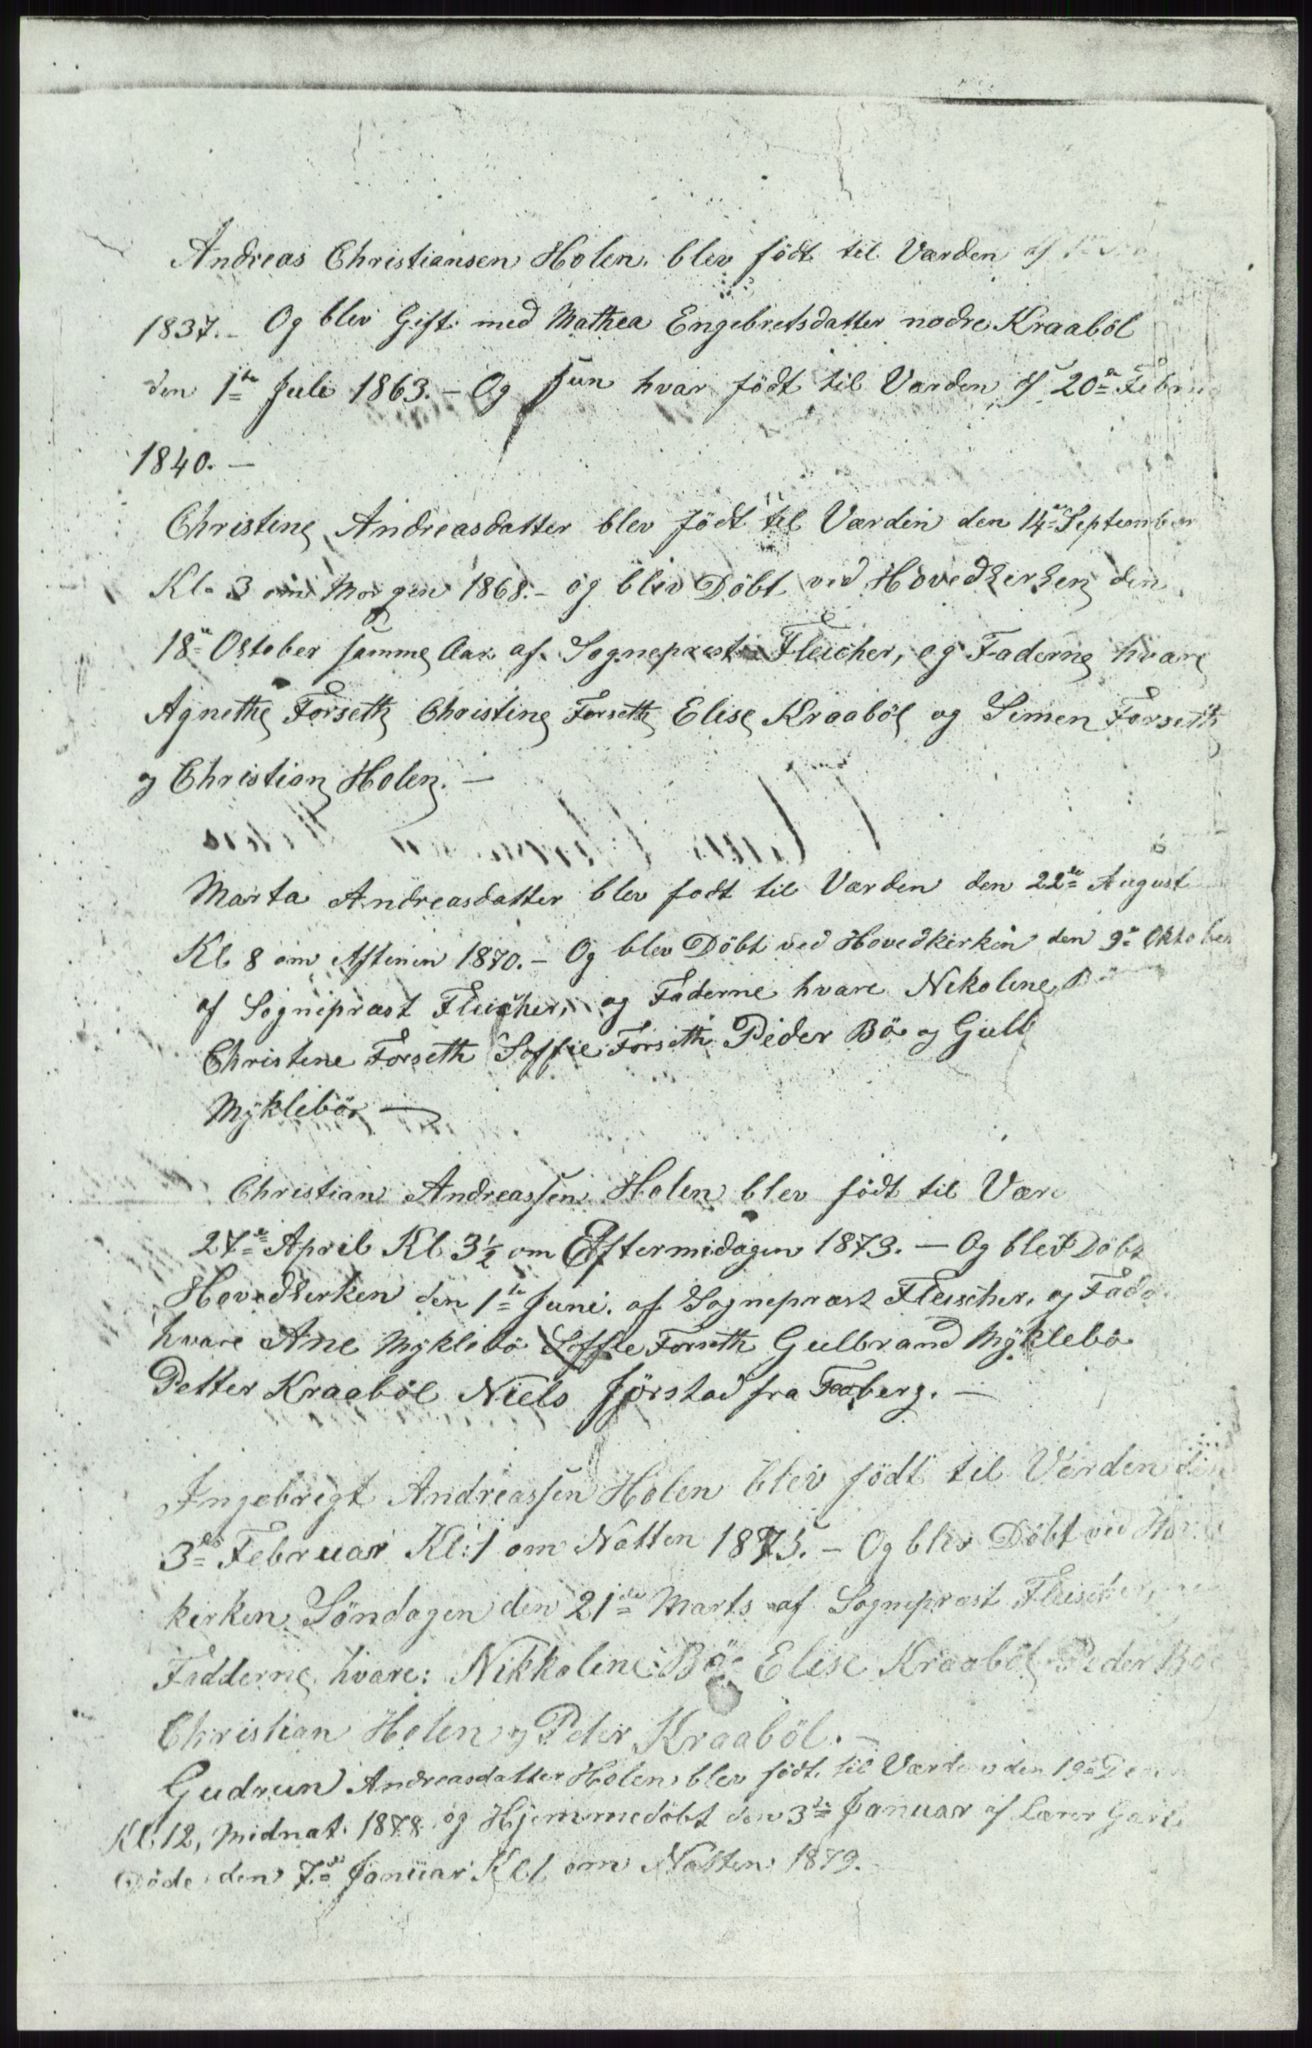 Andreas Christiansen Holen blev födt til Værden af
1837.- Og blev Gift med Mathea Engebretsdatter nodre Kraaböl
den 1te Juli 1863.- Og hun hvar födt til Værden 20de Febru
1840.-
Christine Andreasdatter blev födt til Værden den 14de September
Kl. 3 om Morgen 1868.- og blev Döbt ved Hovedkirken den
18de Oktober samme Aar af Sogneprest Fleicher, og Faderne hvare
Agnethe Forseth Christine Forseth Elise Kraaböl og Simen Forseth
og Christian Holen.-
Marta Andreasdatter blev fodt til Værden den 22de August
Kl 8 om Aftenin 1870.- Og blev Döbt ved Hovedkirkin den 9de Oktober
af Sogneprast Fleicher, og Faderne hvare Nikoline
Christine Forseth Soffie Forseth Peder Bö og Gulb
Myklebör -
Christian Andreassen Holen blev födt til Vær
27de April Kl 3½ om Eftermidagen 1873.- Og blev Döbt
Hovedkirken den 1te Juni. af Sognepræst Fleischer, og Fad
hvare Ane Myklebö Soffie Forseth Gulbrand Myklebö
Petter Kraaböl Niels Jörstad fra Faaberg.-
Ingebrigt Andreassen Holen blev födt til Værden den
3de Februar Kl: 1 om Natten 1875.- Og blev Döbt ved Hov
kirken Söndagen den 21de Marts af Sogneprast Fleisch
Fadderne hvare: Nikkoline Bö Elise Kraaböl Peder Böe
Christian Holen og Peter Kraaböl.-
Gudrun Andreasdatter Holen blev födt til Værden den 19de Decem
Kl: 12, Midnat 1878 og Hjemmedöbt den 3de Januar af Lærer
Döde den 7de Januar Kl 1 om Natten 1879.